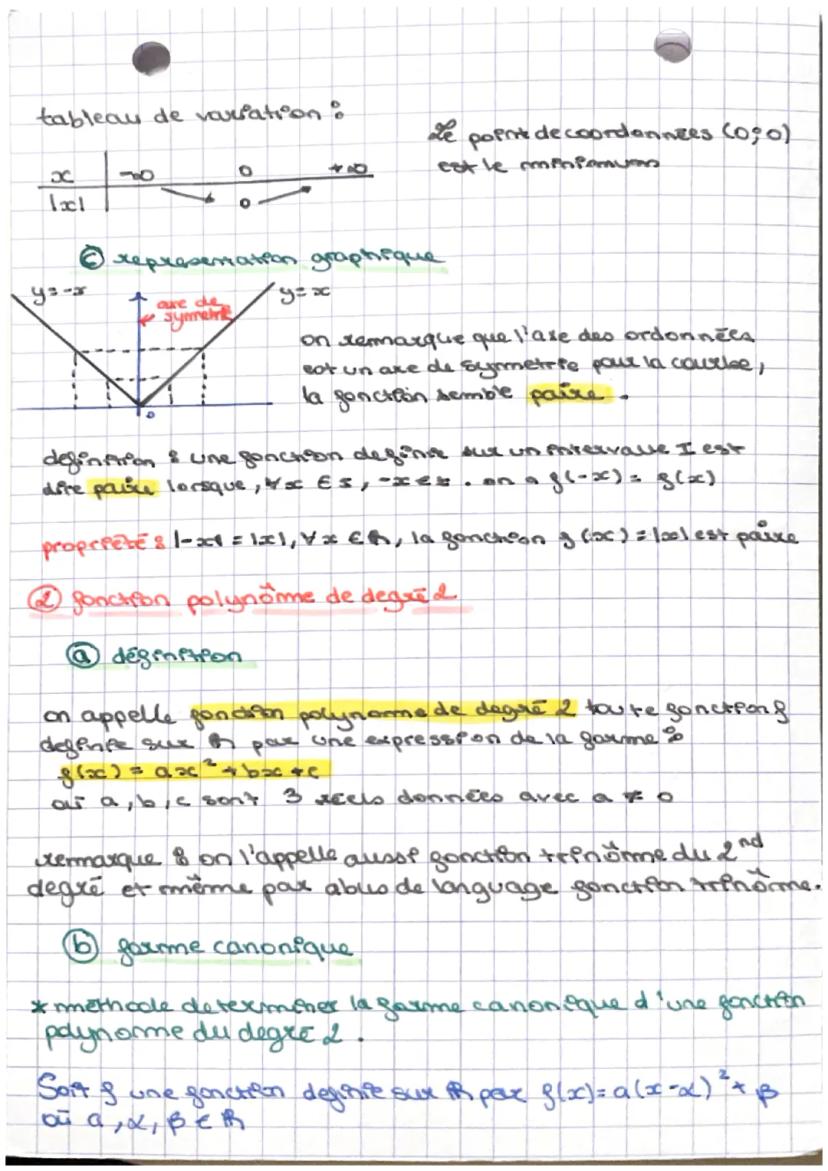 tableau de variation :
Le point de coordonnées (0;0)
est le minimum
x -∞ 0 +∞
|x| 0
ⓒ représentation graphique
y=-x
axe de
symétrie
y=x
0
on remarque que l'axe des ordonnées
est un axe de symmetrie pour la courbe,
la fonction semble paire.
definition : une fonction définie sur un intervalle I est
dite paire lorsque, ∀x ∈ I, -x ∈ I. on a f(-x) = f(x)
propriété : |-x| = |x|, ∀x ∈ ℝ, la fonction f(x) = |x| est paire
② fonction polynôme de degré 2
ⓐ définition
on appelle fonction polynome de degré 2 toute fonction f
definie sur ℝ par une expression de la forme :
f(x) = ax² + bx + c
où a, b, c sont 3 réels données avec a ≠ 0
remarque : on l'appelle aussi fonction trinôme du 2nd
degré et même par abus de language fonction trinôme.
ⓑ forme canonique
* méthode determiner la forme canonique d'une fonction
polynome du degré 2.
Soit f une fonction definie sur ℝ par f(x) = a(x-α)² + β
où a, α, β ∈ ℝ